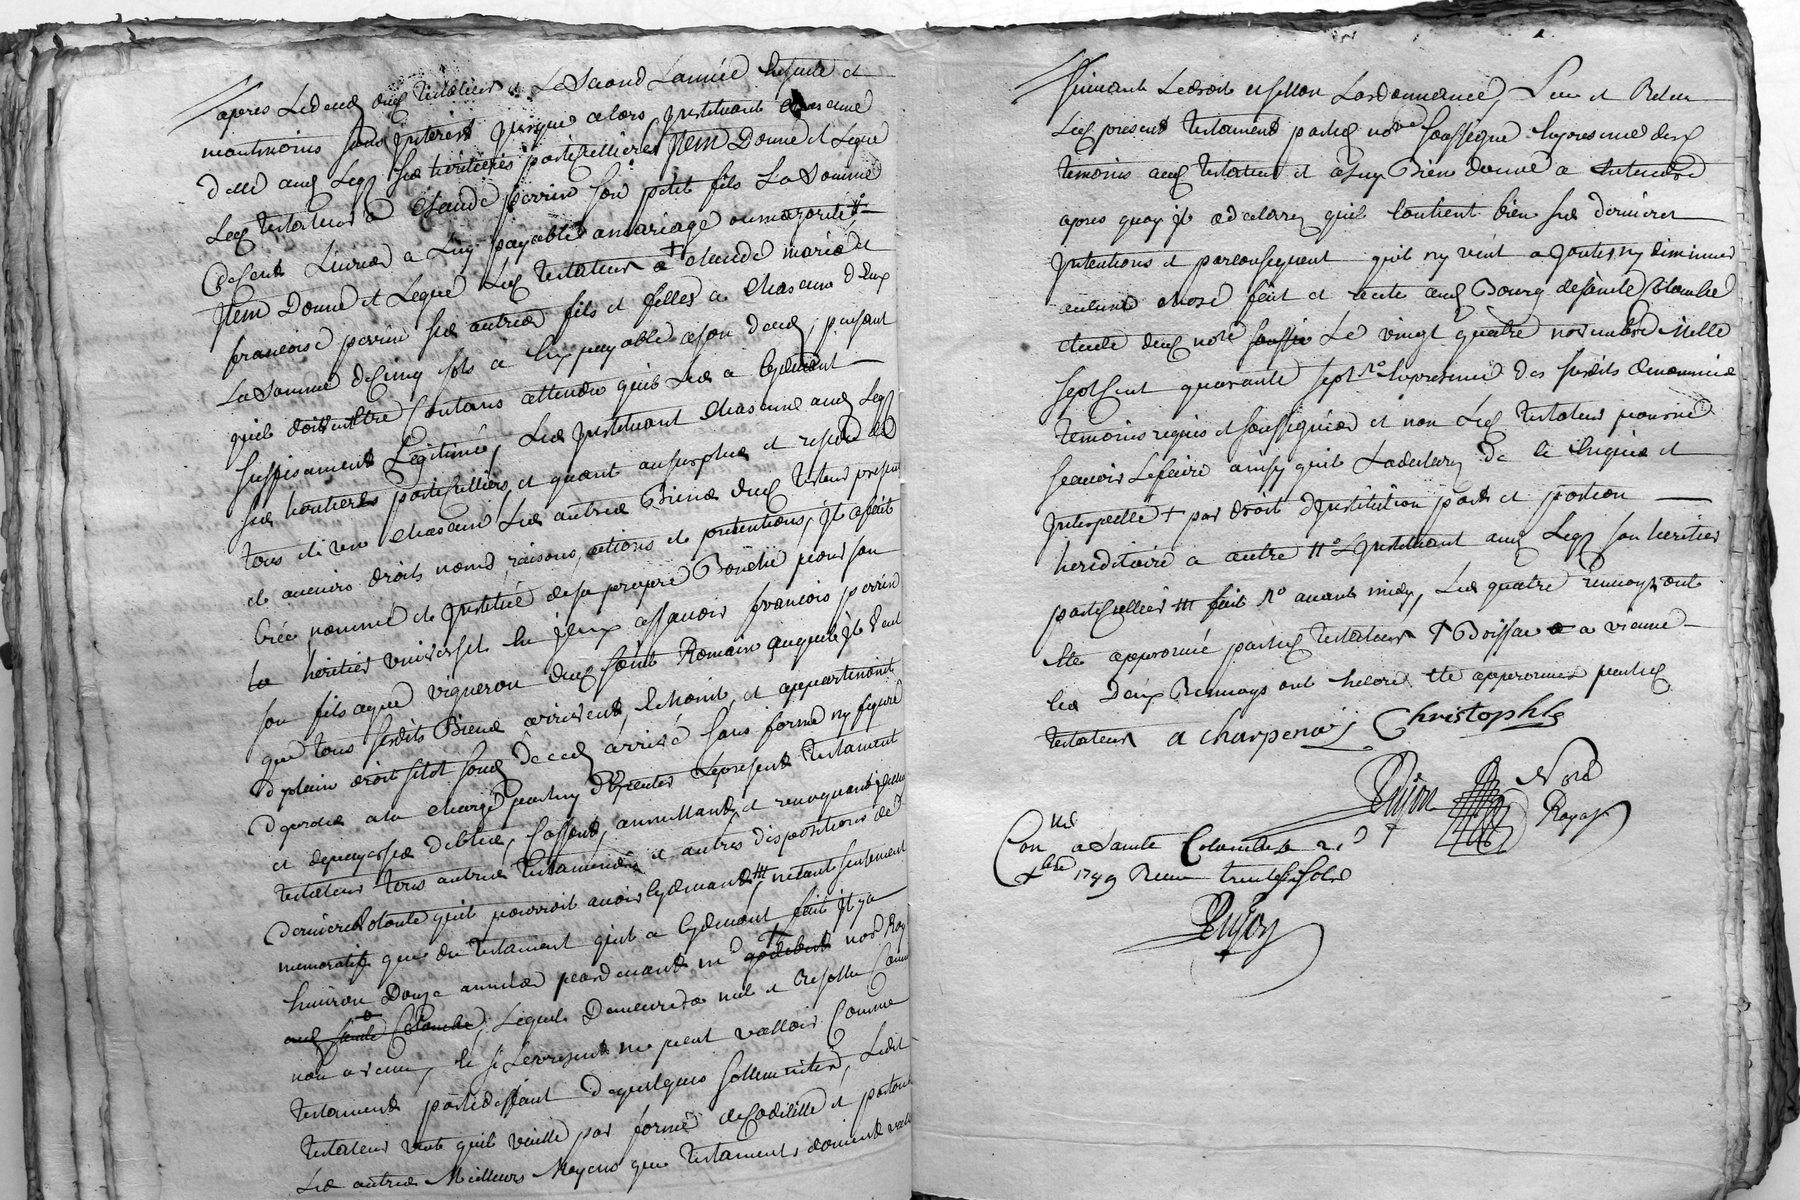 apres le deces dud testateur et le second l'année ensuite et
neantmoins sans interest jusque alors instituant chascune
delle aud legz ses heritieres particullieres Item Donne et legue
led testateur a Claude perrin son petit fils La Somme
de Cent Livres a luy payable a mariage ou majorité #
Item Donne et legue led testateur a + claude marie et
francoise perrin ses autres fils et filles a chascun deux
La Somme de Cinq sols a eux payable a son deces, pensant
quils doivent estre Contans attendu quil les a cydevant
suffisament Legitimé, Les instituant chascune aud legz
ses heritiers particulliers, et quant au surplus et residu de
tous et un chascun Les autres Biens dud testateur presens
et avenirs droits noms, raisons, actions et pretentions, Il a fait
créé nommé et institué de sa propre Bouche pour son
heritier universel en iceux assavoir francois perrin
son fils aussy vigneron dud saint Romain auquel il veut
que tous sesdits Biens arrivent, echoint, et appartinoint
de plain droit sitot sond deces arrivé sans forme ny figure
de procès a la charge par luy d'executer le present testament
et de payer ses debtes, Cassant, annullant, et revoquant ledit
testateur tous autres testaments et autres dispositions de
derniere volonté quil pourroit avoir cydevant ### n'etant seulement
memoratif que du testament quil a cydevant fait Il y a
environ Douze années pardevant me godebert + nore Roy
aud Sainte Colombe, lequel Demeurera nul et Resollu Comme
non avenu, et si le present ne peut valloir Comme
testament par deffaut de quelques sollemnités, Ledit
testateur veut quil vaille par forme de Codicille et par tous
Les autres Meilleurs Moyens que testaments doivent valloir
suivant Le droit et sellon L'ordonnance, Leu et Releu
Led present testament par led nore soussigné en presence des
temoins aud testateur et a luy Bien donné a entendre
apres quoy il a declaré quil Contient bien ses dernieres
intentions et par consequent quil ny veut ajouter, ny diminuer
aucune chose fait et recité aud Bourg de sainte Colombe
etude dud nore soussigné Le vingt quatre novembre Mille
sept Cent quarante sept no en presence des susdits denommés
temoins requis et soussignés et non Led testateur pour ne
scavoir Le faire ainsy quil L'a declaré de ce enquis et
interpellé + par droit d'institution part et portion
hereditaire a autre # L'instituant aud Legz son heritier
particullier ### fait no avant midy, Les quatre renvoys ont
été approuvé par led testateur + Boissac a vienne
Les Deux Renvoys ont encore été approuvés par led
testateur a charpenay Christophle
Dujon Nore
Royal
Conlle a Sainte Colombe le 2. d
xbre 1749 Receu trente six sols
Dujon